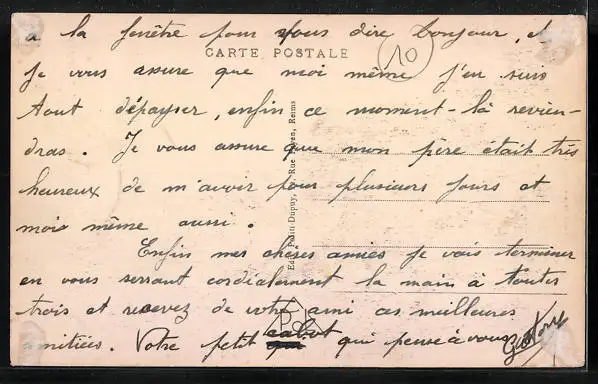 à la fenêtre pour vous dire bonjour, et
CARTE POSTALE
10
je vous assure que moi même j'en suis
tout dépayser, enfin ce moment-là revien-
dras. Je vous assure que mon père était très
heureux de m'avoir pour plusieurs jours et
moi même aussi.
Enfin mes chères amies je vais terminer
en vous serrant cordialement la main à toutes
trois et recevez de votre ami ces meilleures
amitiées. Votre petit cabot qui pense à vous
Gaston
Edit. Petit-Dupuy, Rue Reims